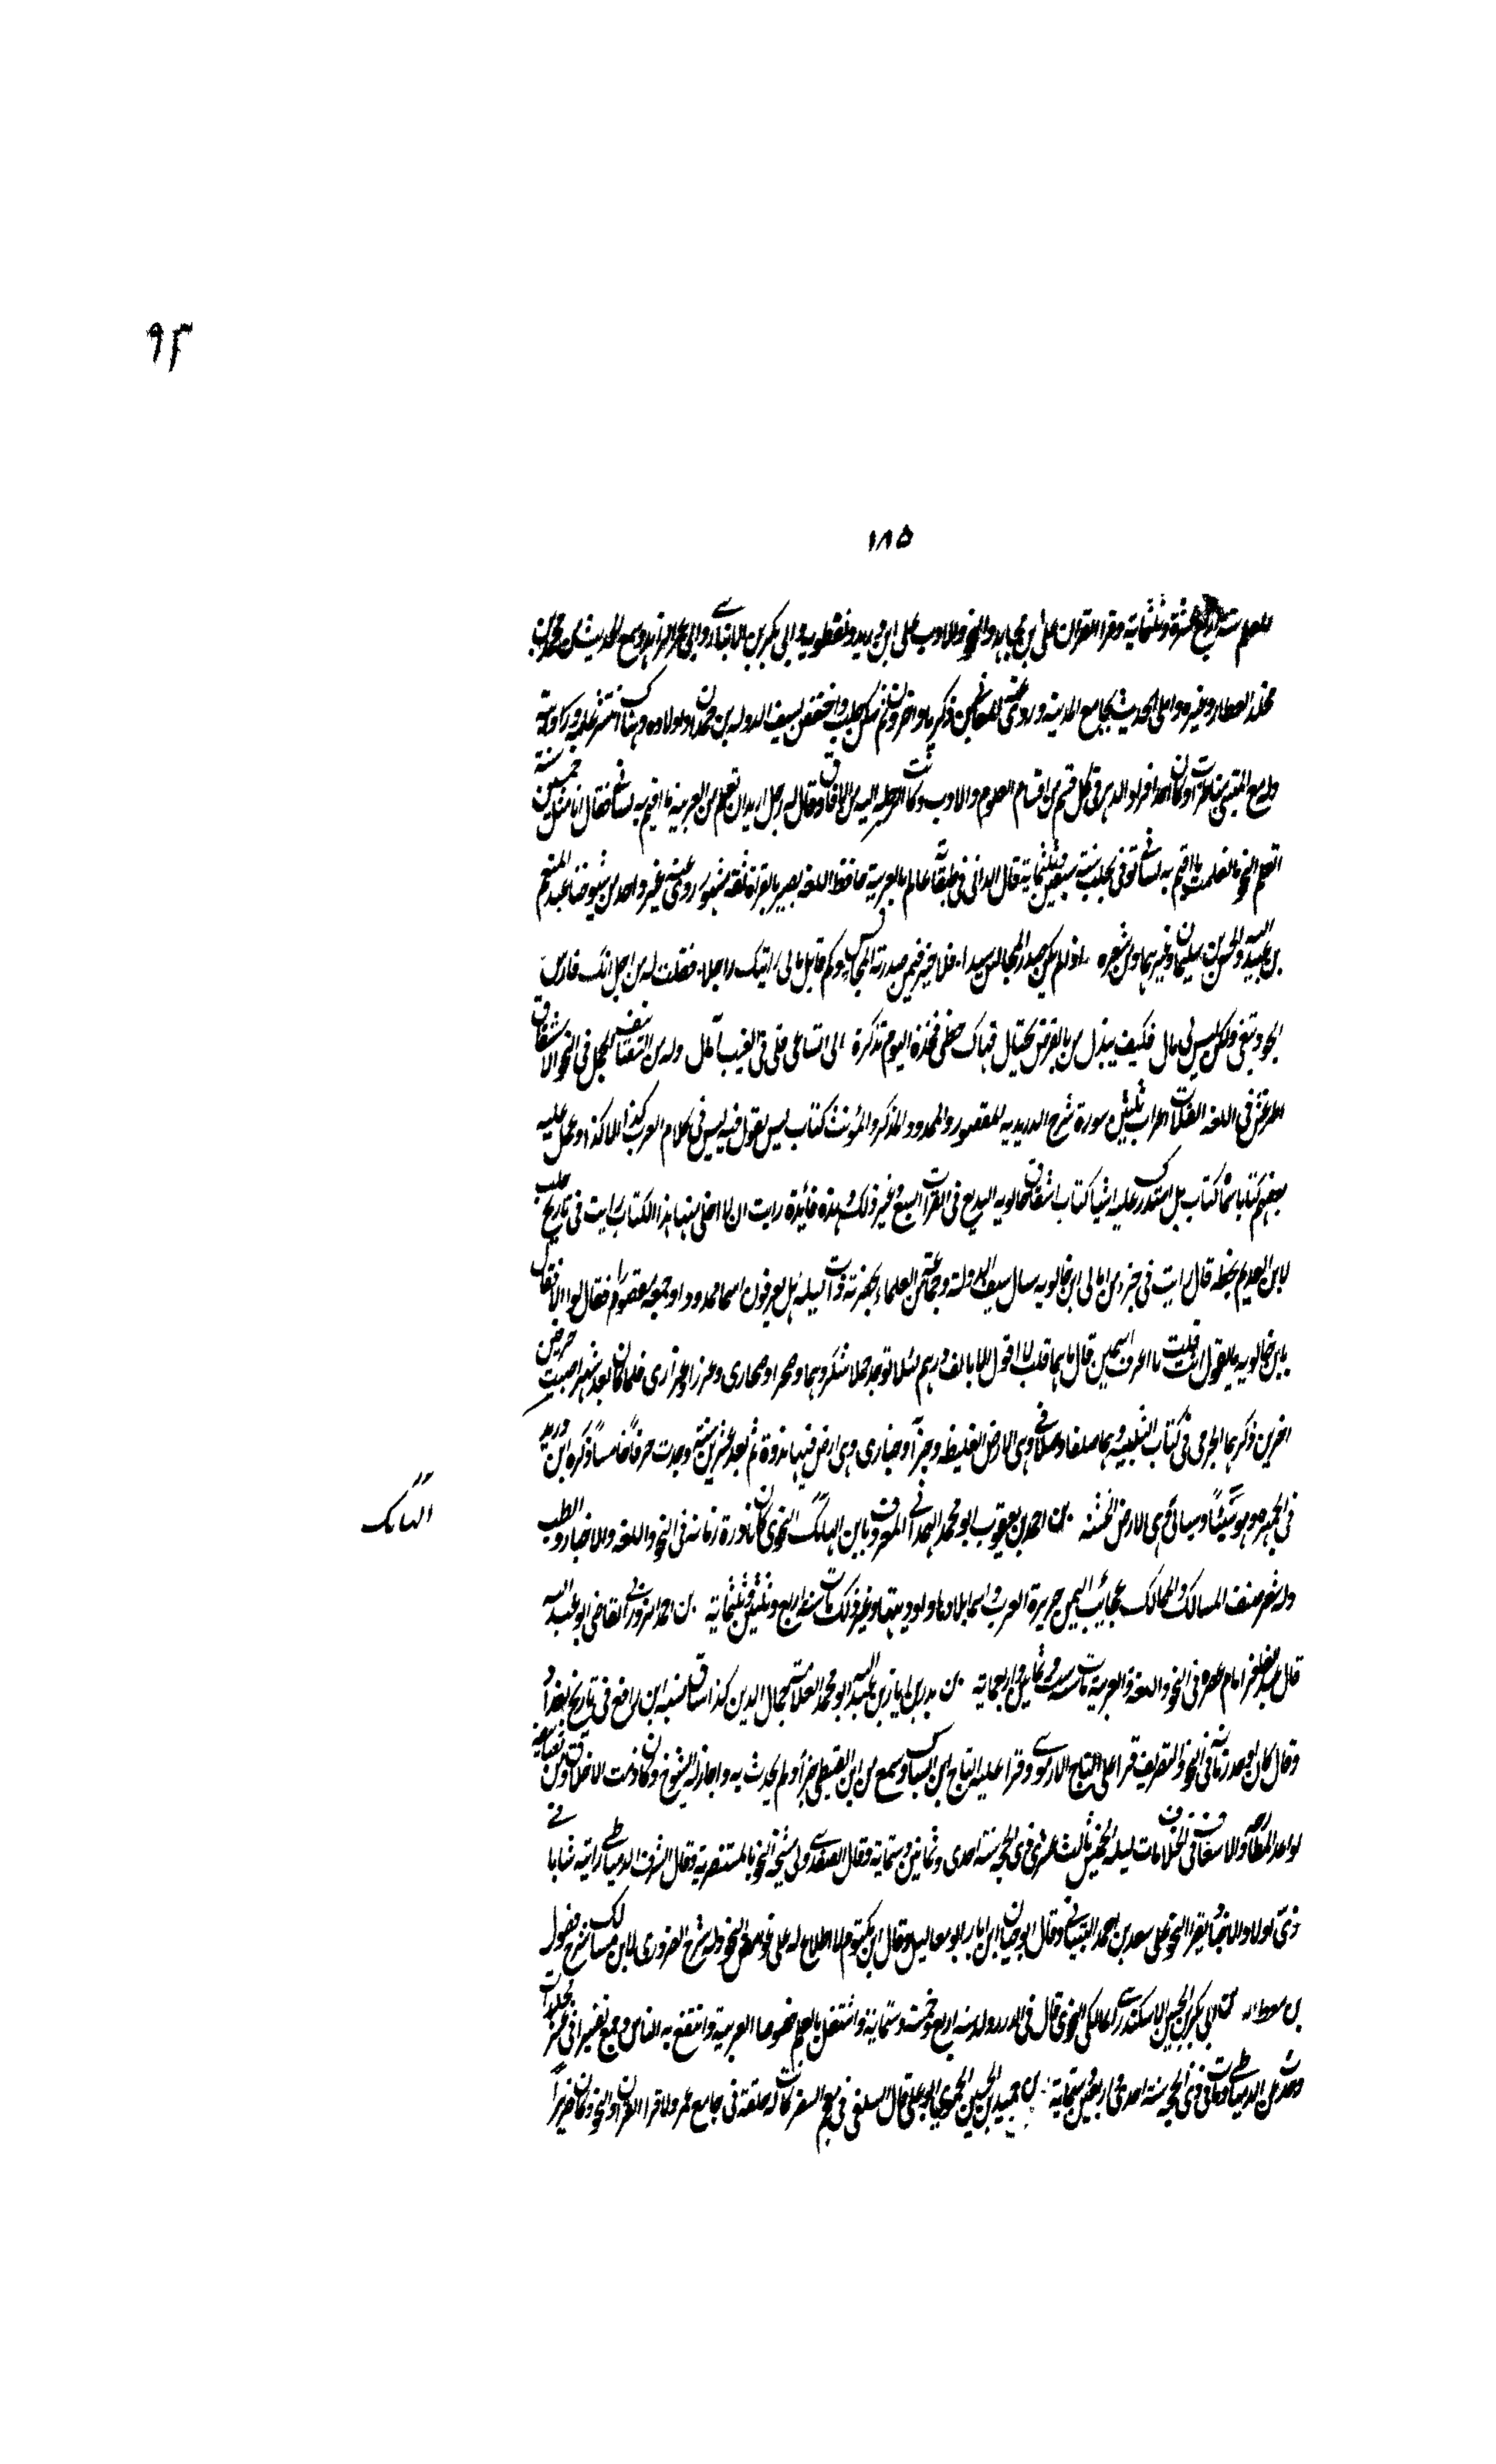 ٩٣
١٨٥
للعلم سنة اربع عشرة وثلثماية وقرا القران على بن مجاهد والنحو والادب على ابن دريد ونفطويه وابى بكر بن الانبارى وابى عمر الزاهد وسمع الحديث من محمد بن
مخلد العطار وغيره واملى الحديث بجامع المدينة وروى عنه المعافى بن ذكريا واخرون ثم سكن حلب واختص بسيف الدولة بن حمدان واولاده وهناك انتشر علمه وروايته
وله مع المتنبى مناظرات وكان احد افراد الدهر فى كل قسم من اقسام العلوم والادب وكانت الرحلة اليه من الافاق وقال له رجل اريد ان تعلم من العربية ما اقيم به لسانى فقال انا منذ خمسين سنة
اتعلم النحو ما تعلمت ما اقيم به لسانى توفى بحلب سنة سبعين وثلثماية قال الدانى فى طبقاته عالم بالعربية حافظ اللغة بصير بالقراة ثقة مشهور روى عنه غير واحد من شيوخنا عبد المنعم
بن عبيد الله والحسن بن سليمان وغيرهما ومن شعره اذا لم يكن صدر المجالس سيدا فلا خير فيمن صدرته المجالس وكم قايل مالى رايتك راجلا فقلت له من اجل انك فارس
الجود تبغى ولكن ليس لى مال فكيف يبذل من بالقرض يحتال فهاك حظى فخذه اليوم تذكرة الى اتساعى فلى فى الغيب آمال وله من التصانيف الجمل فى النحو الاشتقاق
اطرغش فى اللغة القراآت اعراب ثلثين سورة شرح الدريدية المقصور والممدود المذكر والمؤنث كتاب ليس يقول فيه ليس فى كلام العرب كذا الا كذا وعمل عليه
بعضهم كتابا سماه كتاب بل استدرك عليه اشيا كتاب اشتقاق خالويه البديع فى القراآت السبع وغير ذلك وهذه فائدة رايت ان لا اخلى منها هذا الكتاب رايت فى تاريخ حلب
لابن العديم بخطه قال رايت فى جزء من امالى ابن خالويه سال سيف الدولة جماعة من العلماء بحضرته ذات ليلة هل تعرفون اسما ممدودا وجمعه مقصورا فقالوا لا فقال
يابن خالويه ما تقول انت قلت انا اعرف اسمين قال ما هما قلت لا اقول الا بالف درهم لئلا توخذ بلا شكر وهما صحرا وصحارى وعذرا وعذارى فلما كان بعد شهر اصبت حرفين
اخرين ذكرهما الجرمى فى كتاب التنبيه وهما صلفا وصلافى وهى الارض الغليظة وخبرا وخبارى وهى ارض فيها ندوة ثم بعد عشرين سنة وجدت حرفا خامسا ذكره ابن دريد
فى الجمهرة وهو سبتا وسباتى وهى الارض الخشنة بن احمد بن يعقوب ابو محمد الهمدانى المعروف بابن الحائك النحوى كان نادرة زمانه فى النحو واللغة والاخبار والطب
الحائك
وله شعر صنف المسالك والممالك عجائب اليمن جزيرة العرب واسما بلادها واوديتها وغير ذلك مات سنة اربع وثلثين وثلثماية بن احمد الزوزنى القاضى ابو عبد الله
قال عبد الغافر امام عصره فى النحو واللغة والعربية مات سنة ست وثمانين واربعماية بن بدر بن اياز بن عبد الله ابو محمد العلامة جمال الدين كذا ساق نسبه ابن رافع فى تاريخ بغداد
وقال كان اوحد زمانه فى النحو والتصريف قرا على التاج الارموى وقرا عليه التاج ابن السباك وسمع من ابن القبيطى جزا ولم يحدث به واجاز له الشيوخ وكان دمث الاخلاق ومن تصانيفه
قواعد المطارحة والاسعاف فى الخلاف مات ليلة الخميس ثالث عشر ذى الحجة سنة احدى وثمانين وستماية وقال الصفدى ولى مشيخة النحو بالمستنصرية وقال الشرف الدمياطى رايته شابا فى
زى اولاد الاجناد يقرا النحو على سعد بن احمد البيانى وقال ابو حيان ابن اياز ابو تعاليل وقال ابن مكتوم لا اطلاع له على غوامض النحو وله شرح الضرورى لابن مالك شرح فصول
بن معط بن ابى بكر بن الحسين الاسكندرى المالكى النحوى قال فى الدرر ولد سنة اربع وخمسين وستماية واشتغل بالعلم خصوصا العربية وانتفع به الناس وجمع تفسيرا فى عشر مجلدات
وحدث عن الدمياطى ومات فى ذى الحجة سنة احدى واربعين وسبعماية بن حميد بن الحسين الحموى ابو على قال السلفى فى معجم السفر كانت له حلقة فى جامع عمرو لاقراء القران والنحو وكان ضريرا